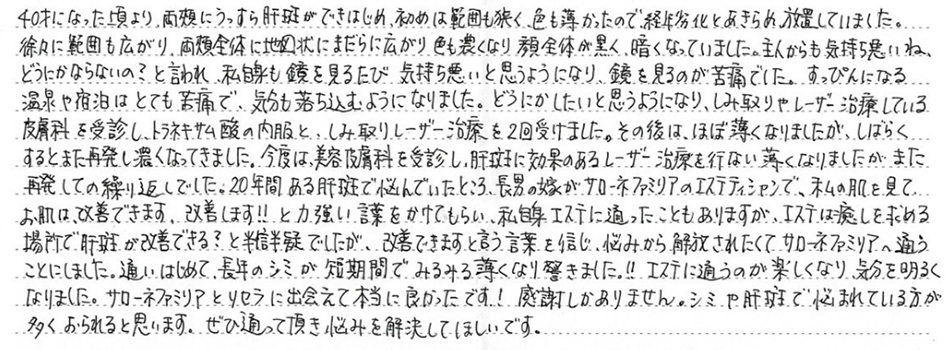 40才になった頃より、両頬にうっすら肝斑ができはじめ、初めは範囲も狭く、色も薄かったので経年劣化とあきらめ、放置していました。
徐々に範囲も広がり、両頬全体に地図状にまだらに広がり、色も濃くなり、顔全体が黒く、暗くなっていました。主人からも気持ち悪いね、
どうにかならないの？と言われ、私自身も鏡を見るたび、気持ち悪いと思うようになり、鏡を見るのが苦痛でした。すっぴんになる
温泉や宿泊はとても苦痛で、気分も落ち込むようになりました。どうにかしたいと思うようになり、しみ取りやレーザー治療している
皮膚科を受診し、トラネキサム酸の内服と、しみ取りレーザー治療を2回受けました。その後は、ほぼ薄くなりましたが、しばらく
するとまた再発し濃くなってきました。今度は、美容皮膚科を受診し、肝斑に効果のあるレーザー治療を行ない薄くなりましたが、また
再発しての繰り返しでした。20年間ある肝斑で悩んでいたところ、長男の嫁がサローネファミリアのエステティシャンで、私の肌を見て
お肌は改善できます、改善します!!と力強い言葉をかけてもらい、私自身エステに通ったこともありますが、エステは癒しを求める
場所で肝斑が改善できる？と半信半疑でしたが、改善できますと言う言葉を信じ、悩みから解放されたくてサローネファミリアへ通う
ことにしました。通いはじめて、長年のシミが短期間でみるみる薄くなり驚きました。!! エステに通うのが楽しくなり、気分を明るく
なりました。サローネファミリアとリセラに出会えて本当に良かったです！感謝しかありません。シミや肝斑で悩まれている方が
多くおられると思います。ぜひ通って頂き悩みを解決してほしいです。